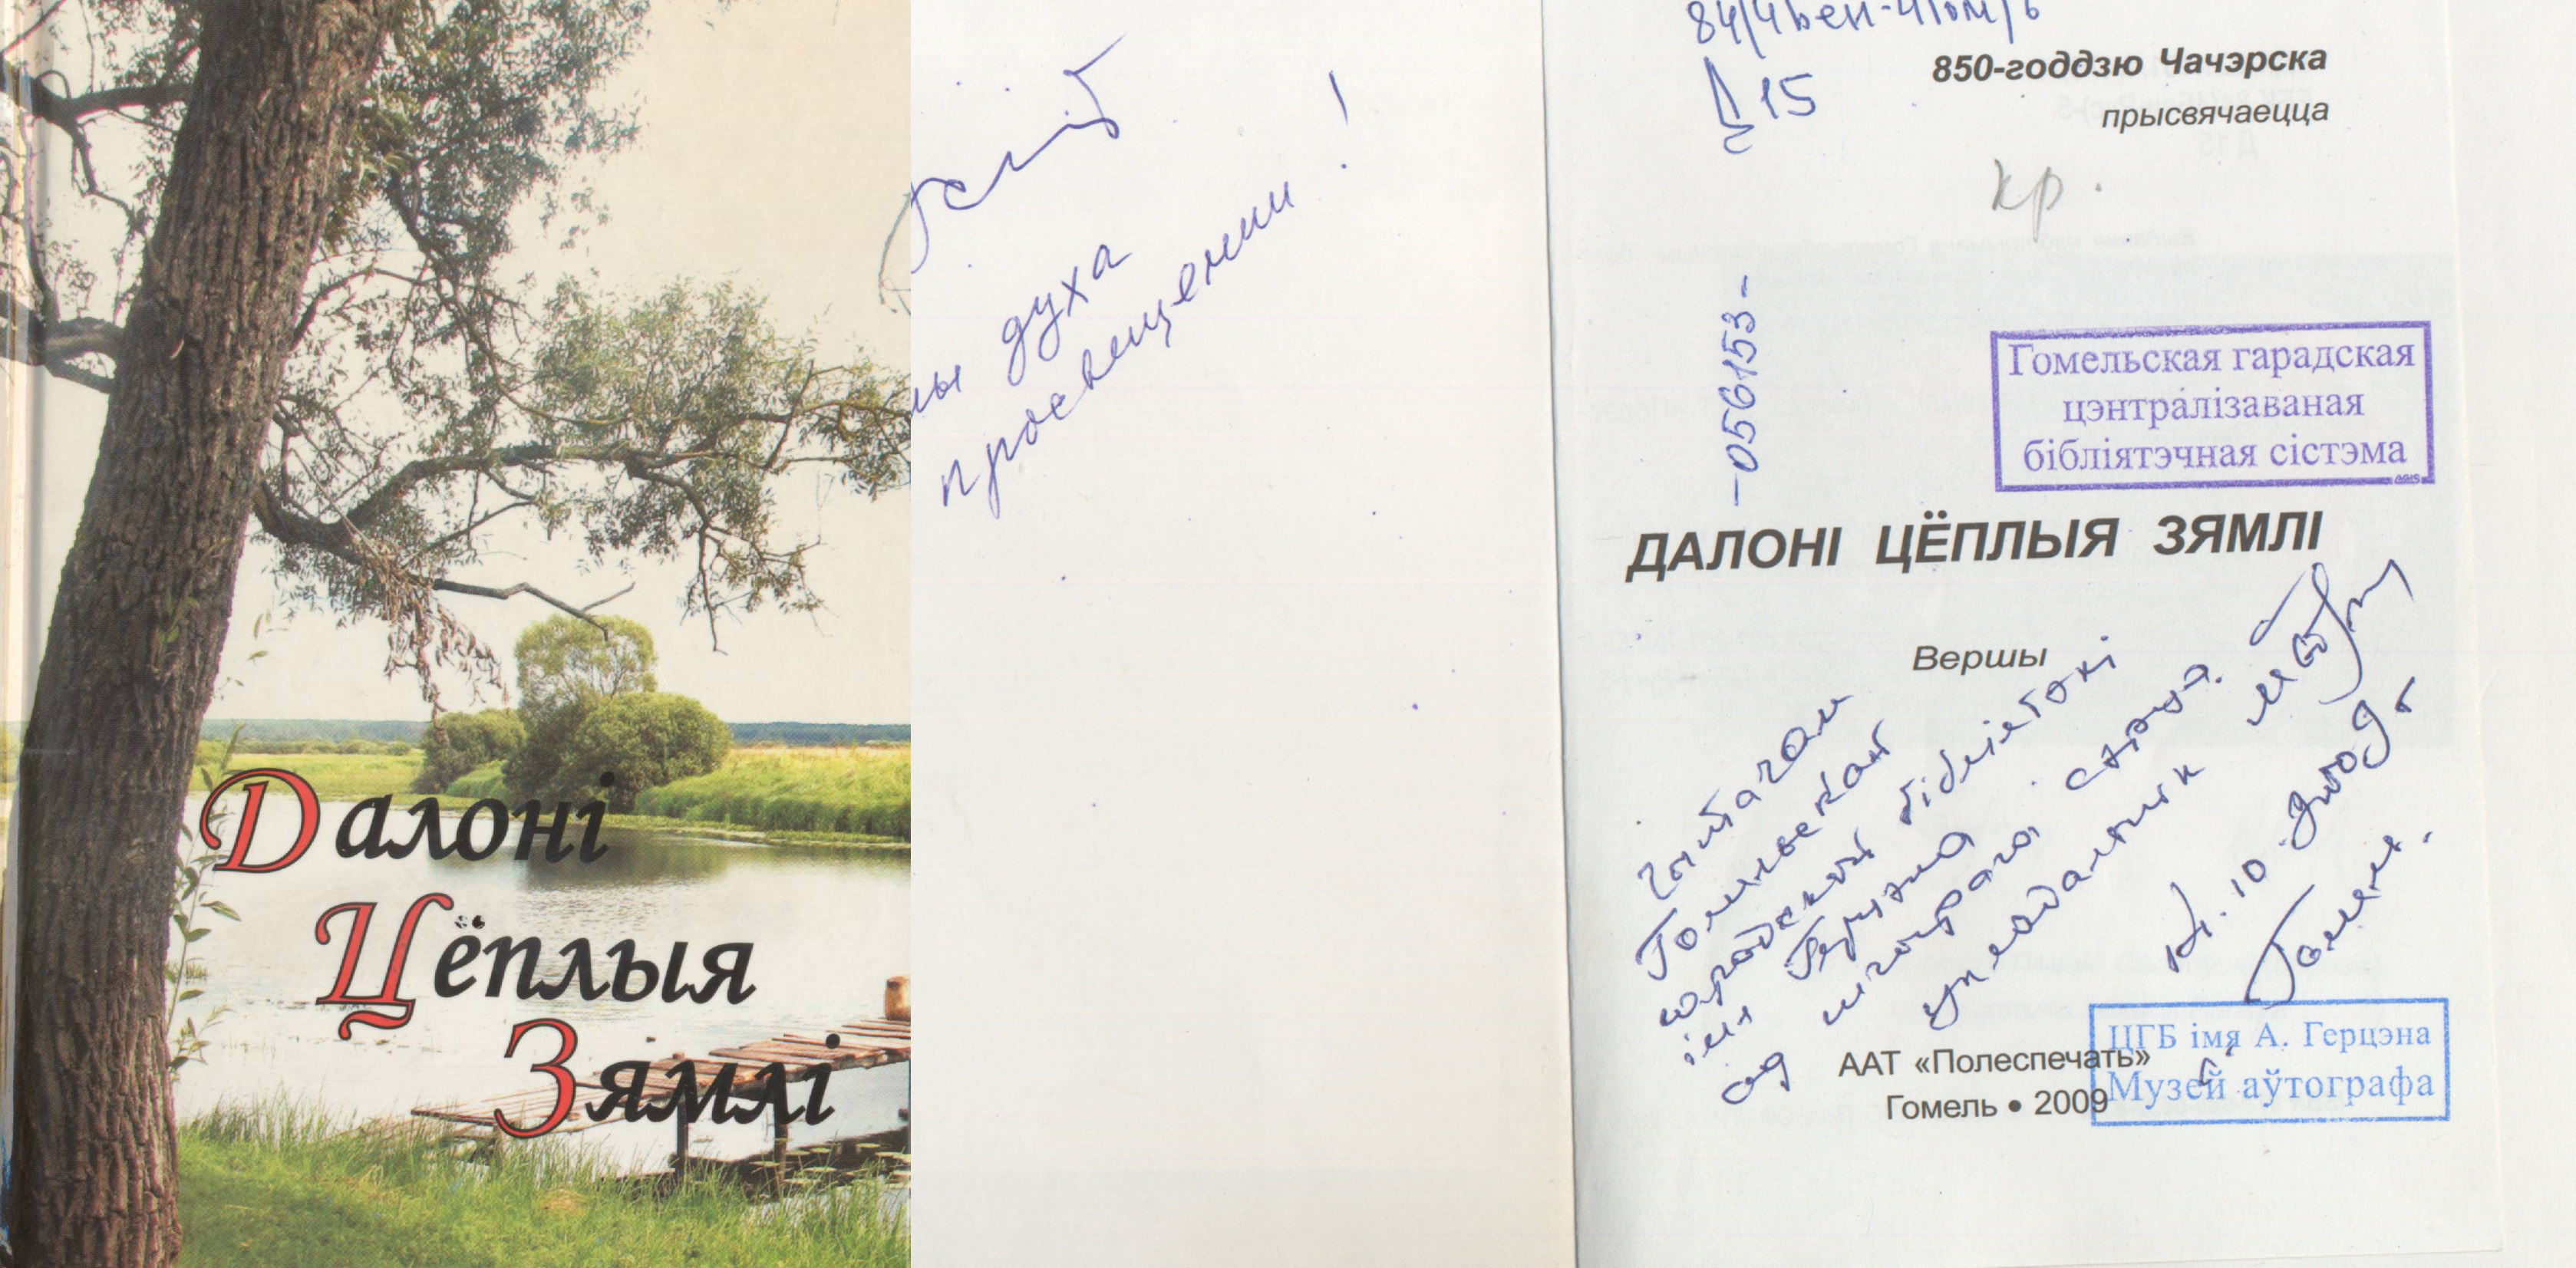 Далоні
Цёплыя
Зямлі
духа
просвещении!
Д15
850-годдзю Чачэрска
прысвячаецца
кр.
-056153-
Гомельская гарадская
цэнтралізаваная
бібліятэчная сістэма
ДАЛОНІ ЦЁПЛЫЯ ЗЯМЛІ
Вершы
Чытачам
Гомельскай
гарадской бібліятэкі
імя Герцэна
ад шчырага сэрца.
укладальнік
10. 2010 г.
Гомель.
ААТ «Полеспечать»
Гомель • 2009
ЦГБ імя А. Герцэна
Музей аўтографа